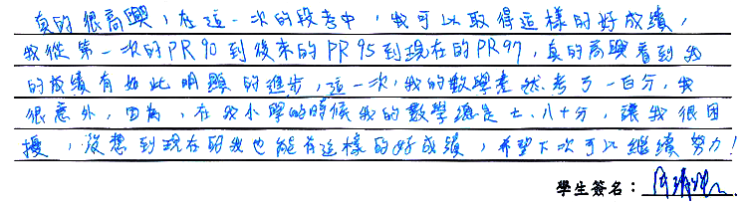 真的很高興，在這一次的段考中，我可以取得這樣的好成績，
我從第一次的PR90到後來的PR95到現在的PR97，真的高興看到我
的成績有如此明顯的進步，這一次，我的數學竟然考了一百分，我
很意外，因為，在我小學的時候我的數學總是七、八十分，讓我很困
擾，沒想到現在的我也能有這樣的好成績，希望下次可以繼續努力！
學生簽名：